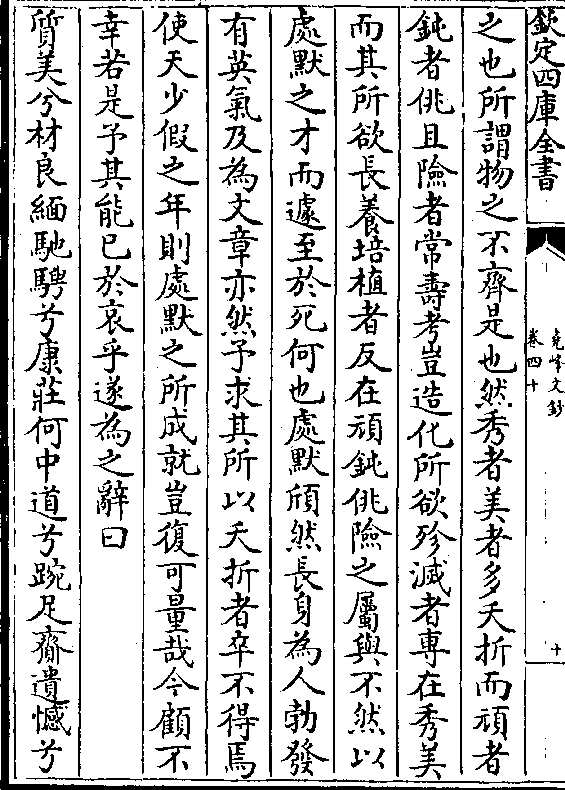 欽定四庫全書
堯峰文鈔
卷四十
十
之也所謂物之不齊是也然秀者美者多夭折而頑者
鈍者佻且險者常壽考豈造化所欲殄滅者專在秀美
而其所欲長養培植者反在頑鈍佻險之屬與不然以
處默之才而遽至於死何也處默頎然長身為人勃發
有英氣及為文章亦然予求其所以夭折者卒不得焉
使天少假之年則處默之所成就豈復可量哉今顧不
幸若是予其能已於哀乎遂為之辭曰
質美兮材良緬馳騁兮康莊何中道兮踠足齎遺憾兮